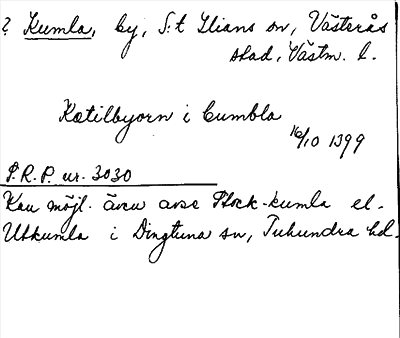 ? Kumla, by, S:t Ilians sn, Västerås
stad, Västm. l.
Kætilbyorn i Cumbla
16/10 1399
P.R.P. nr. 3030
Kan möjl. även avse Stock-kumla el.
Utkumla i Dingtuna sn, Tuhundra hd.